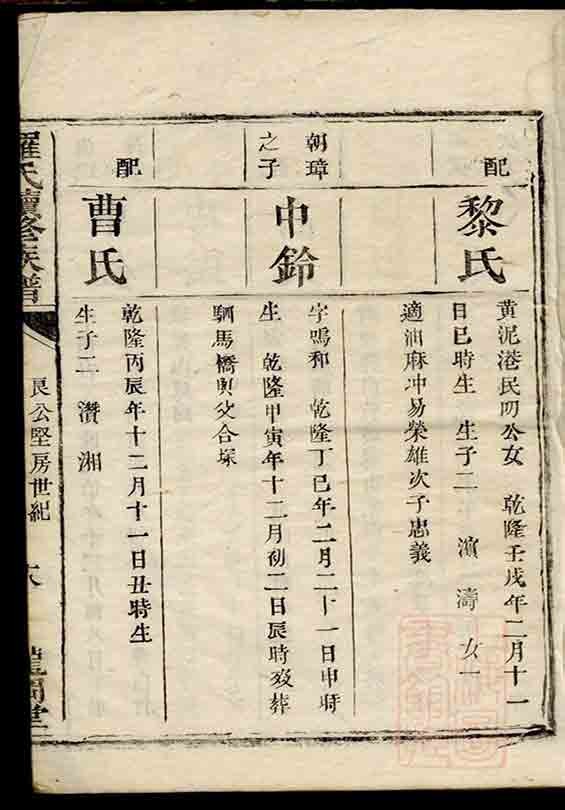 配
黎氏
黃泥港民明公女 乾隆壬戌年二月十一
日巳時生 生子二 濱濤 女一
適油麻冲易榮雄次子忠義
朝璋
之子
中鈴
字鳴和 乾隆丁巳年二月二十一日申時
生 乾隆甲寅年十二月初二日辰時歿葬
駟馬橋與父合塚
配
曹氏
乾隆丙辰年十二月十一日丑時生
生子二 瓚湘
羅氏續修族譜
良公堅房世紀